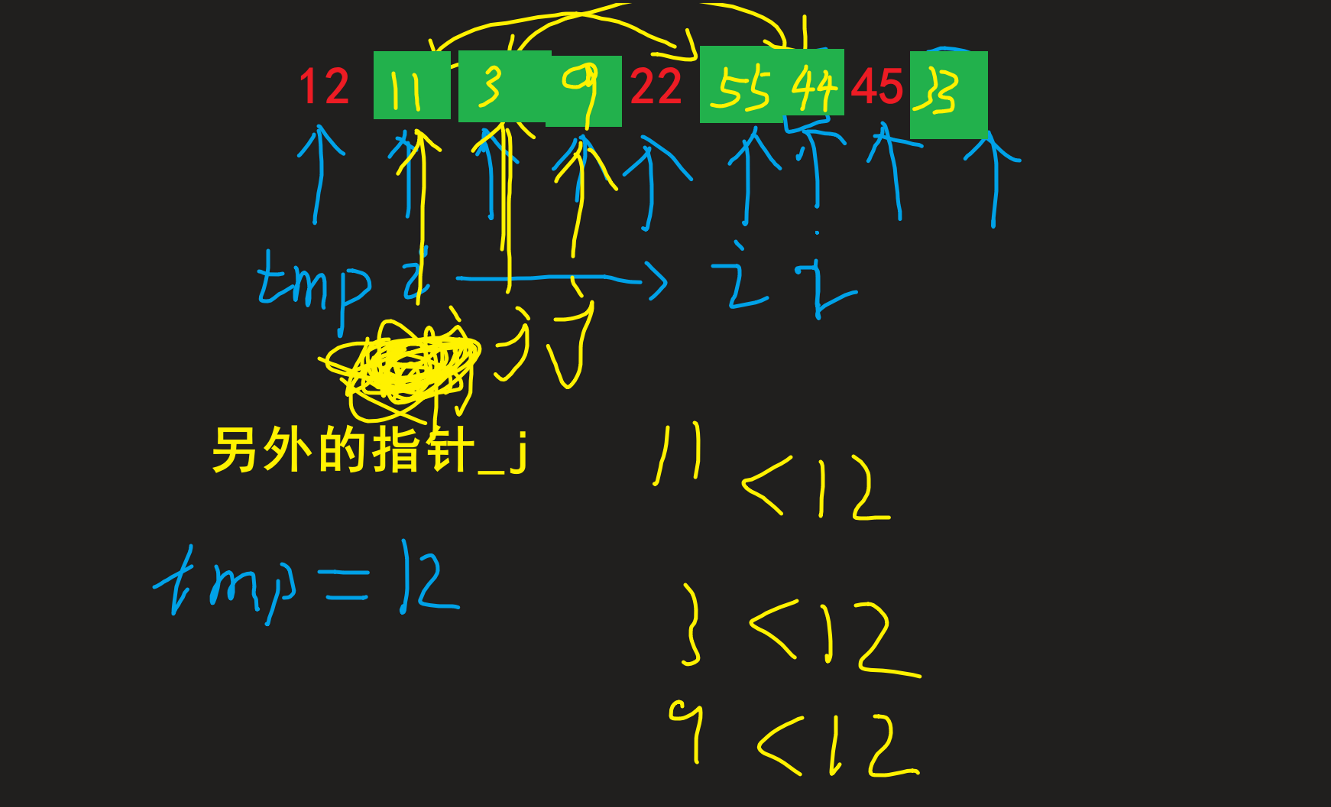 12 11 3 9 22 55 44 45 33
tmp i i i
j j
另外的指针_j
11 < 12
tmp = 12
3 < 12
9 < 12